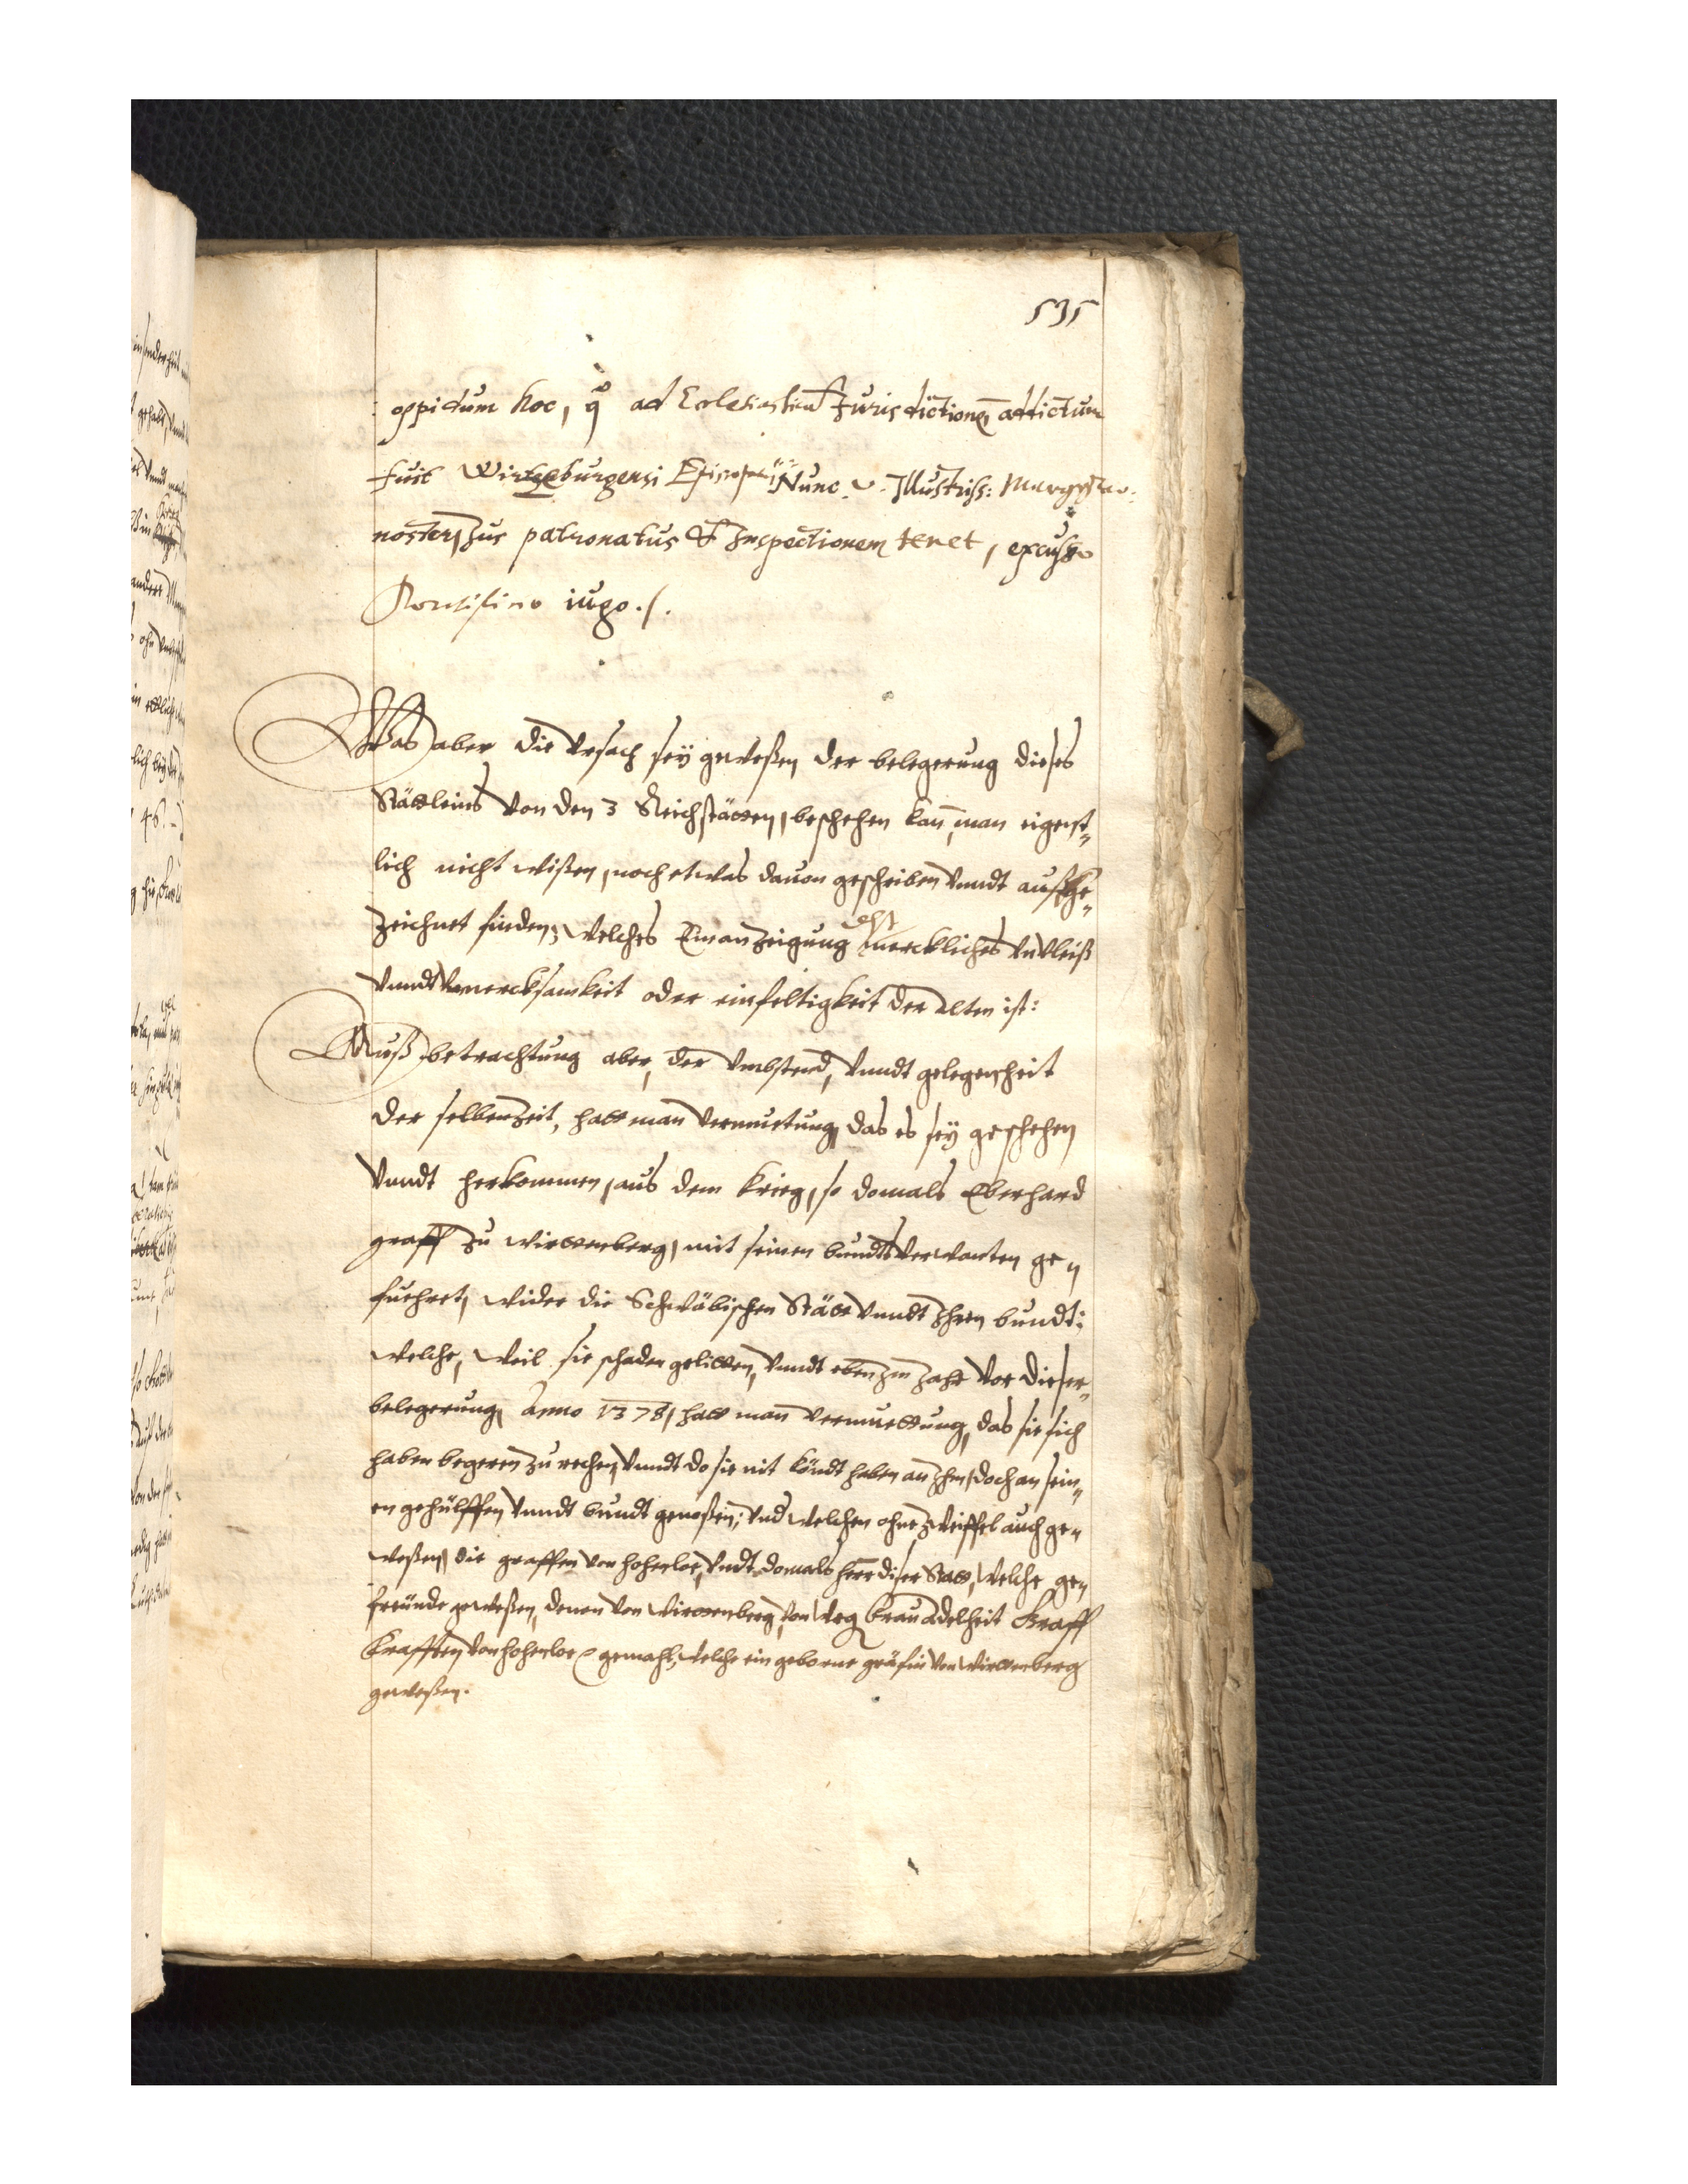 535
oppidum hoc, q̊ ad Ecclesiasticā Jurisdictionē addictum
fuit Wirtzeburgensi Episcopo Nunc Illustriss: Marggrav:
noster, Jus patronatus & Inspectionem tenet, excusso
Pontificio iugo./.
Was aber die Vrsach seÿ geweßen der belegerung dieses
Stättleins von den 3 Reichstätten, beschehen kan̄ man eigent„
lich nicht wißen, noch etwas dauon geschriben vnndt aufge„
zeichnet finden, welches Ein anzeigung merckliches vnvleiß
vnndt Vnmercksamkeit oder einfeltigkeit der alten ist:
Auß betrachtung aber, der vmbstend, vnndt gelegenheit
der selben Zeit, hatt man vermuetung, das es seÿ geschehen
vnndt herkommen, aus dem krieg, so domals Eberhard
graff zu wirttenberg, mit seinen bundtsverwanten ge„
fuehret, wider die Schwäbischen Stätt vnndt Ihren bundt:
welche, weil sie schaden gelitten, vnndt eben Im Jahr vor dieser„
belegerung, Anno 1378, hatt man vermuettung, das sie sich
haben begeren zu rechen, vnndt do sie nit köndt haben an Ihm, doch an sein„
en gehülffen vnndt bundt genoßen; vnd welchen ohne Zweiffel auch ge„
weßen, die graffen von hohenloe, vndt domals herr diser Statt, welche ge„
freünde geweßen, denen von Wirttenberg, von weg frau Adelheit Graff
Krafften von hohenloe gemahl, welche ein geborne gräfin von Wirttenberg
geweßen.